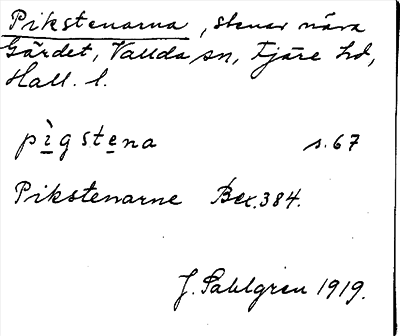 Pikstenarna, stenar nära
Gärdet, Vallda sn, Fjäre hd,
Hall. l.
pìgstena s. 67
Pikstenarne Bex. 384.
J. Sahlgren 1919.